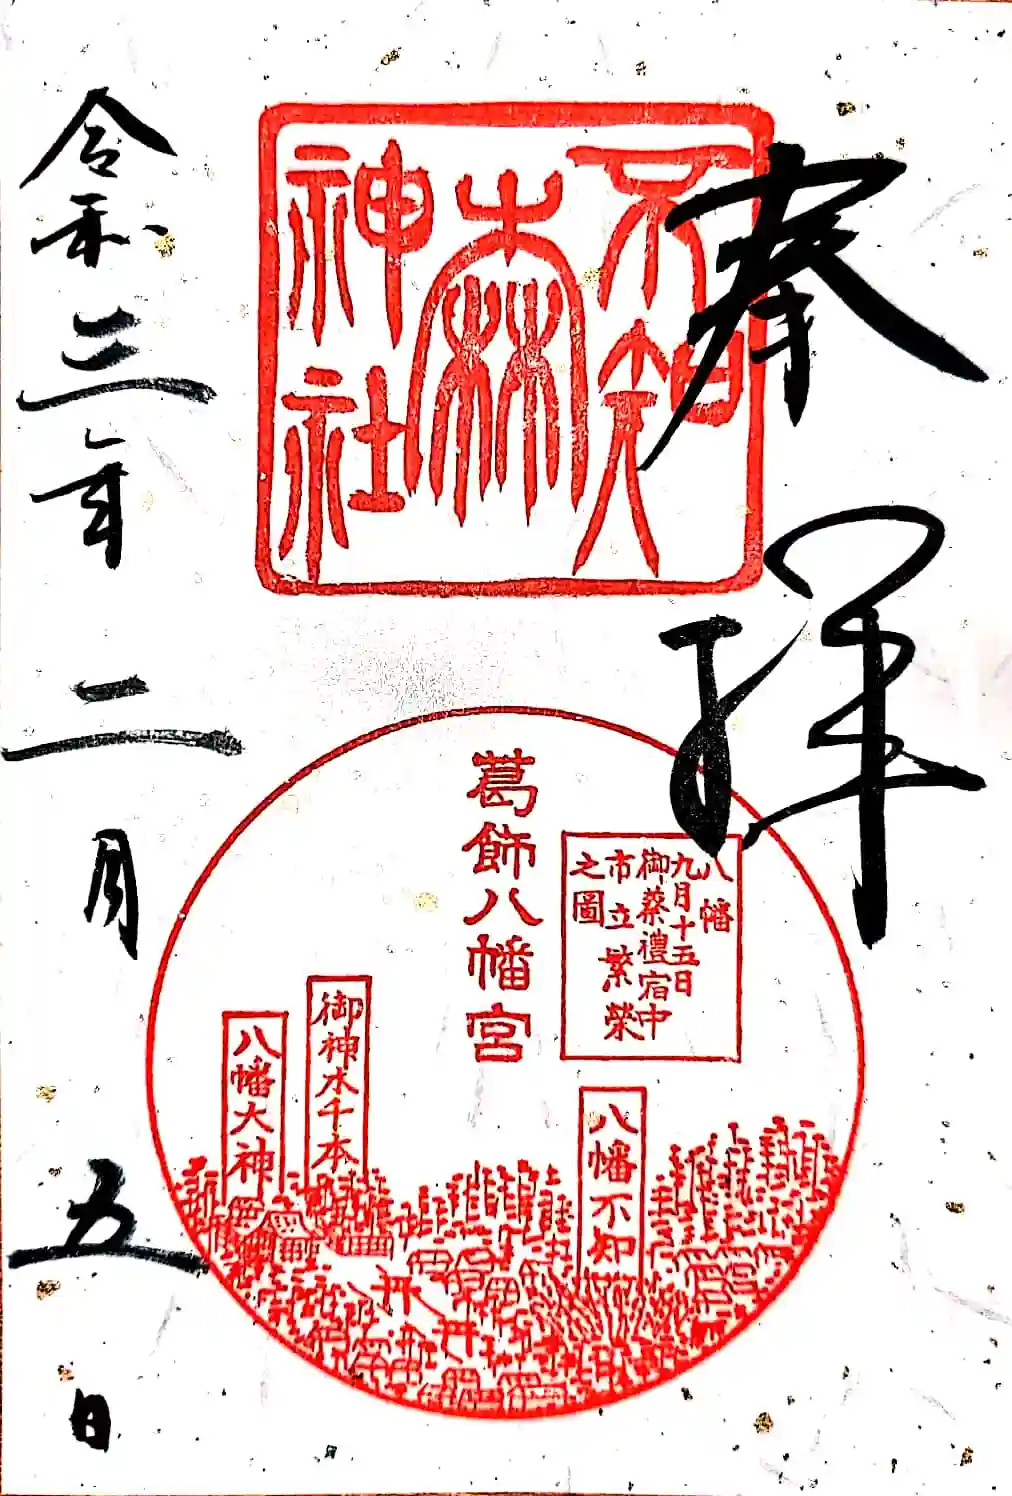 奉拝
不知
森
神社
葛飾八幡宮
八幡
九月十五日
御祭禮宿中
市立繁榮
之圖
八幡不知
御神木千本
八幡大神
令和三年二月五日